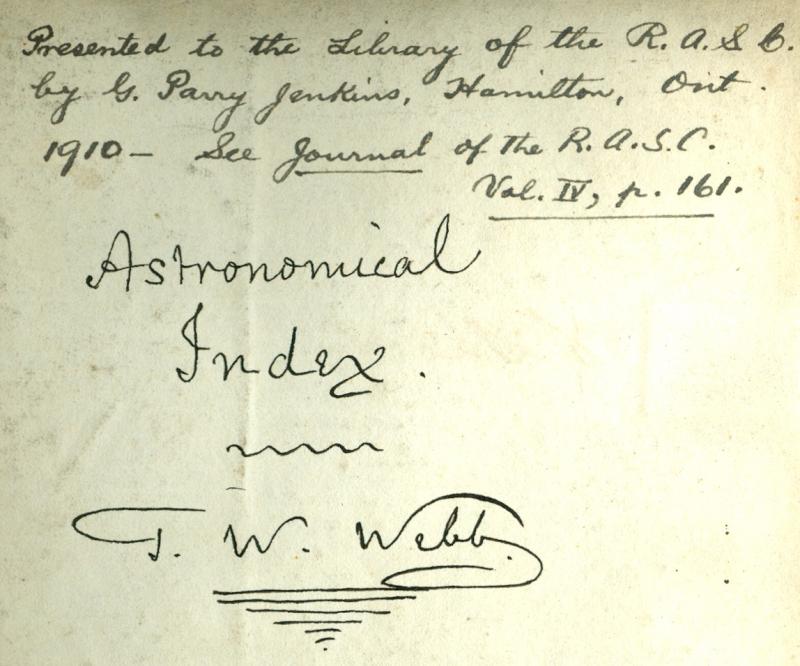 Presented to the Library of the R. A. S C.
by G. Parry Jenkins, Hamilton, Ont.
1910 – See Journal of the R. A. S. C.
Vol. IV, p. 161.
Astronomical
Index.
T. W. Webb.